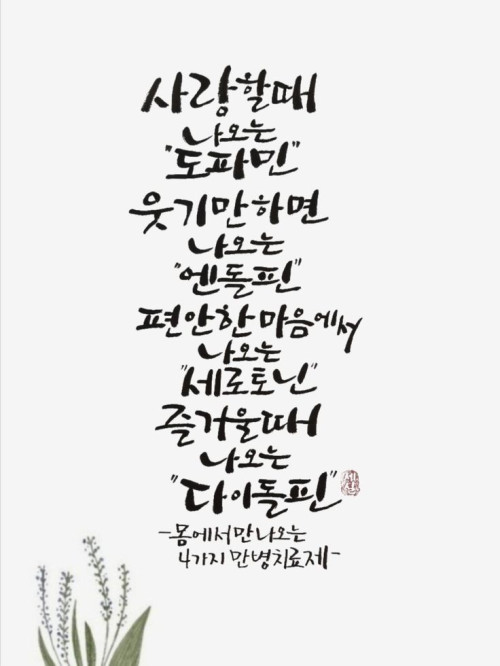 사랑할때
나오는
"도파민"
웃기만하면
나오는
"엔돌핀"
편안한마음에서
나오는
"세로토닌"
즐거울때
나오는
"다이돌핀"
-몸에서만나오는
4가지 만병치료제-